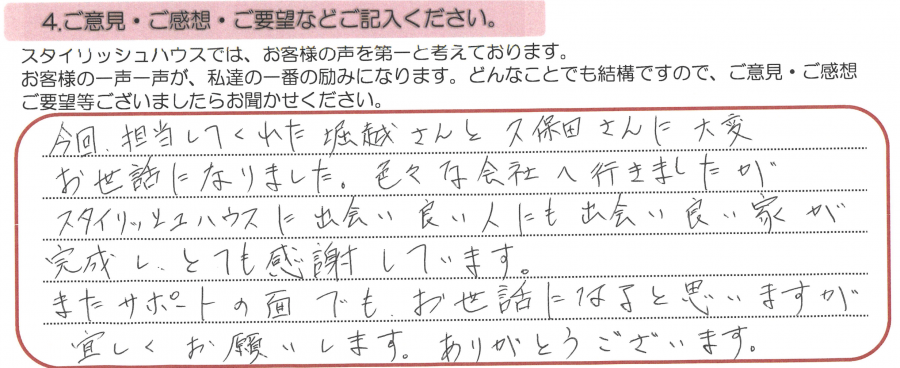 4.ご意見・ご感想・ご要望などご記入ください。
スタイリッシュハウスでは、お客様の声を第一と考えております。
お客様の一声一声が、私達の一番の励みになります。どんなことでも結構ですので、ご意見・ご感想
ご要望等ございましたらお聞かせください。
今回、担当してくれた堀越さんと久保田さんに大変
お世話になりました。色々な会社へ行きましたが
スタイリッシュハウスに出会い良い人にも出会い良い家が
完成し、とても感謝しています。
またサポートの面でも、お世話になると思いますが
宜しくお願いします。ありがとうございます。